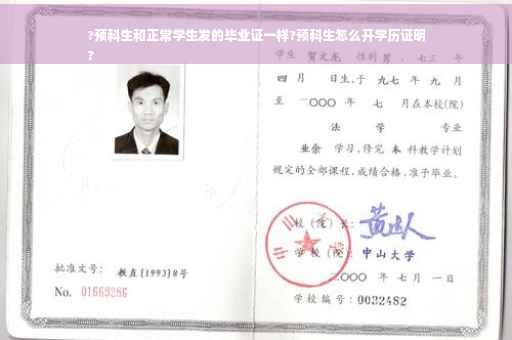 ?预科生和正常学生发的毕业证一样?预科生怎么开学历证明
?
学生 贺文龙 性别 男 、七三 年
四 月 日生,于 九七 年 九 月
至 二〇〇〇 年 七 月在本校(院)
法 学 专业
业余 学习,修完 本 科教学计划
规定的全部课程,成绩合格,准予毕业。
校 (院) 长:
学 校 (院): 中山大学
二〇〇〇 年 七 月 一 日
批准文号: 教直[1993]8号
No. 01669286
学校编号: 0032482
中山大学